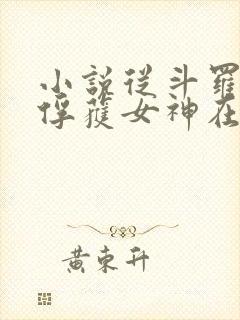 小說從斗羅
俘獲女神在
黃東升